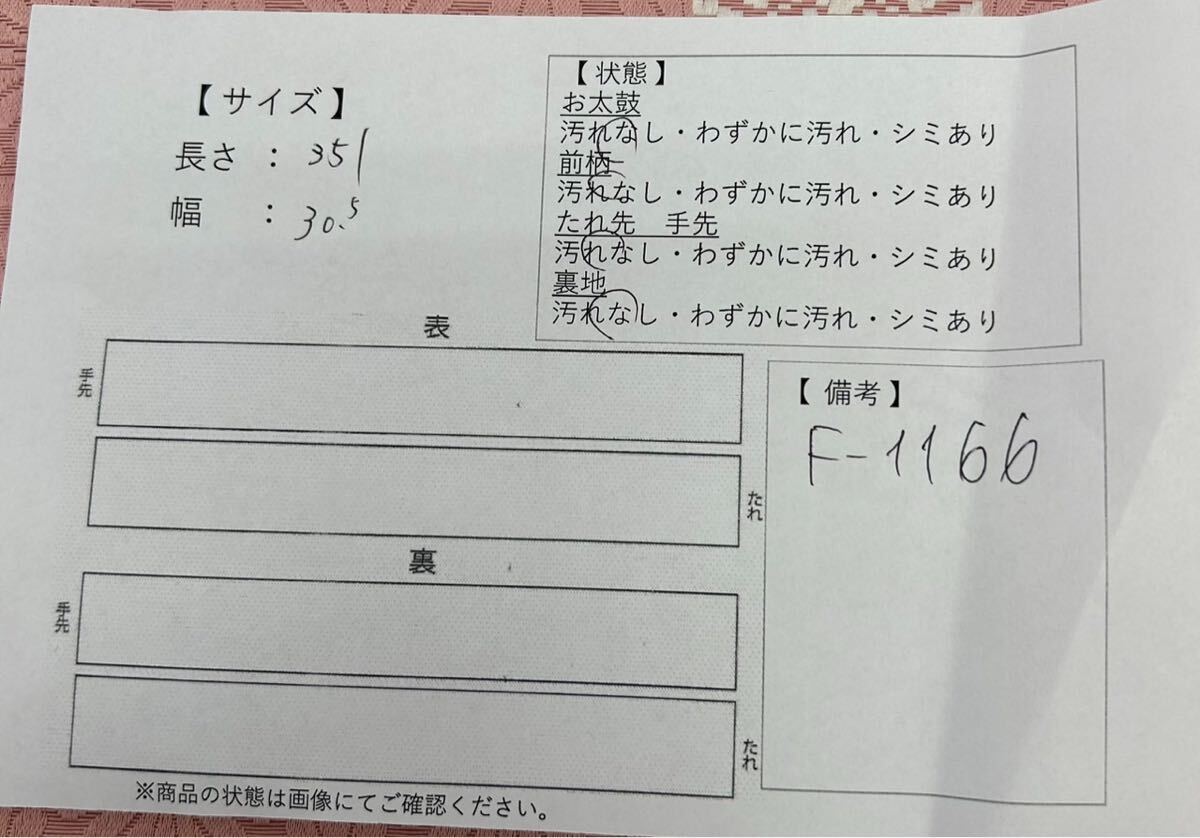 【 サイズ 】
長さ : 351
幅 : 30.5
【 状態 】
お太鼓
汚れなし・わずかに汚れ・シミあり
前柄
汚れなし・わずかに汚れ・シミあり
たれ先 手先
汚れなし・わずかに汚れ・シミあり
裏地
汚れなし・わずかに汚れ・シミあり
表
手先
たれ
裏
手先
たれ
【 備考 】
F-1166
※商品の状態は画像にてご確認ください。